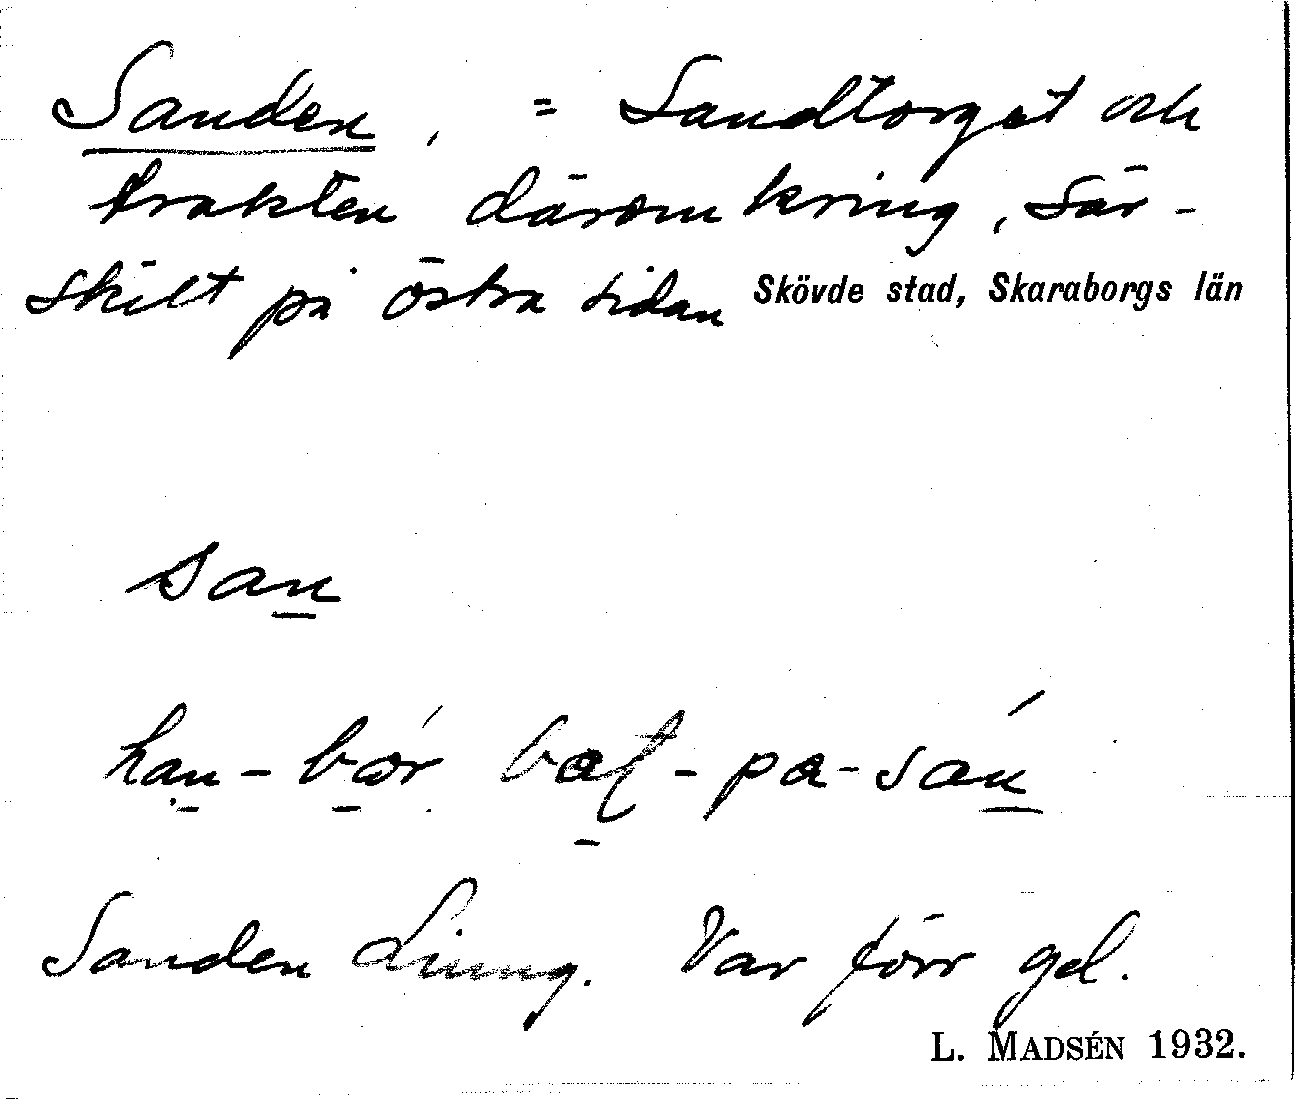 Sanden, = Sandtorget och
trakten däromkring, sär-
skilt på östra sidan Skövde stad, Skaraborgs län
san
han - bor - pa - sán
Sanden Ljung. Var förr gel.
L. MADSÉN 1932.